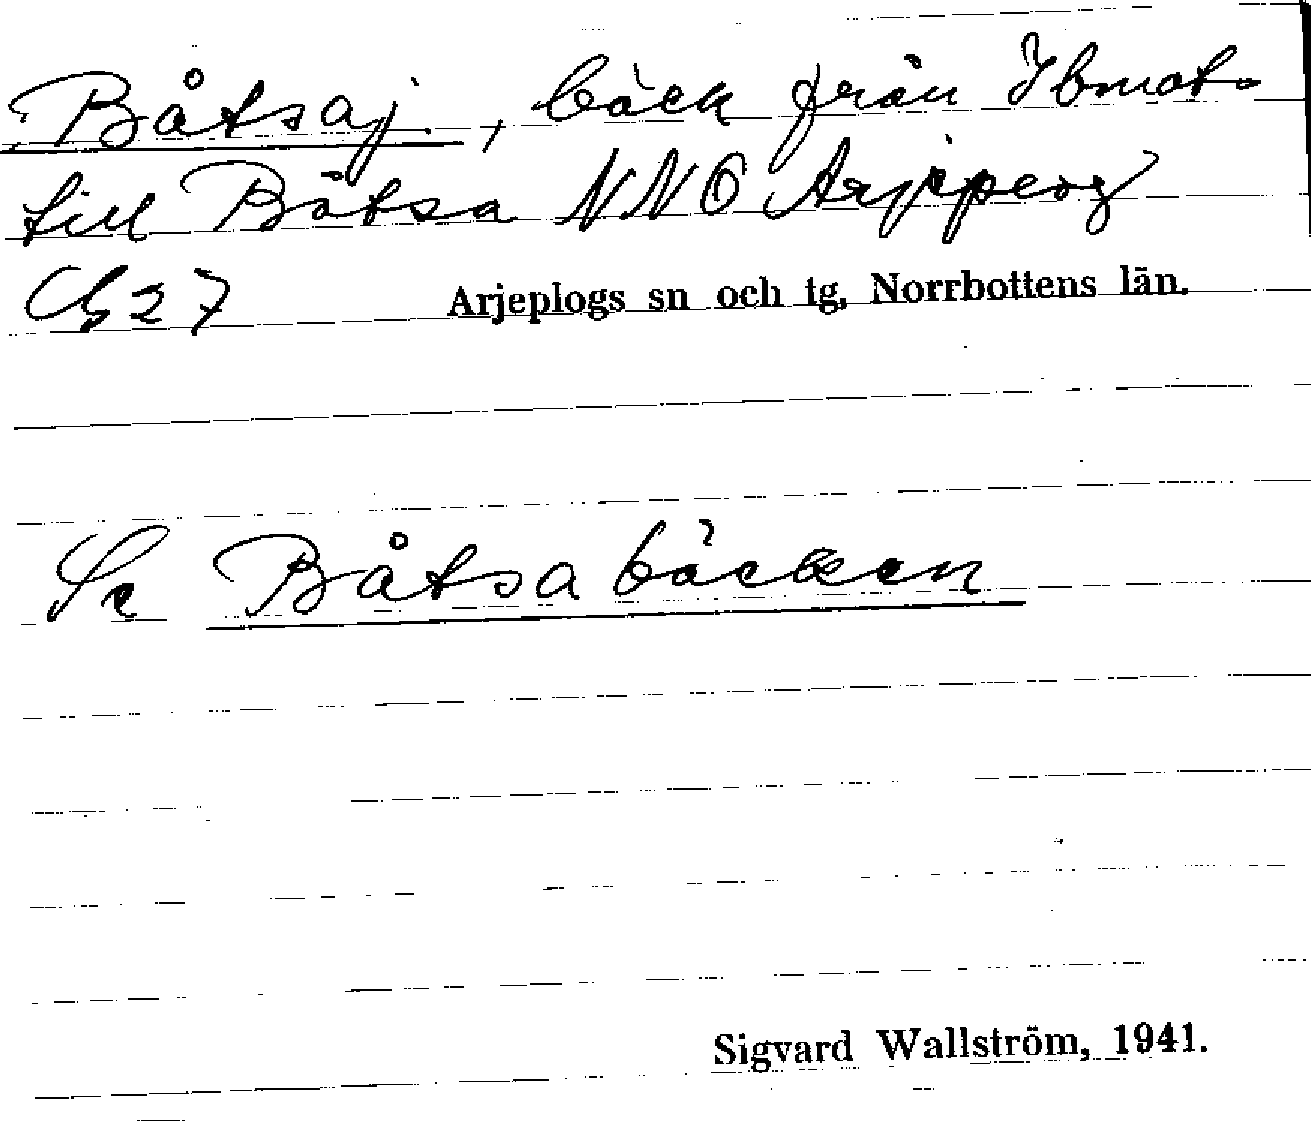 Båtsaj, bäck från Ibmat-
till Båtsa NNO Arjeplog
G27
Arjeplogs sn och tg, Norrbottens län.
Se Båtsabäcken
Sigvard Wallström, 1941.